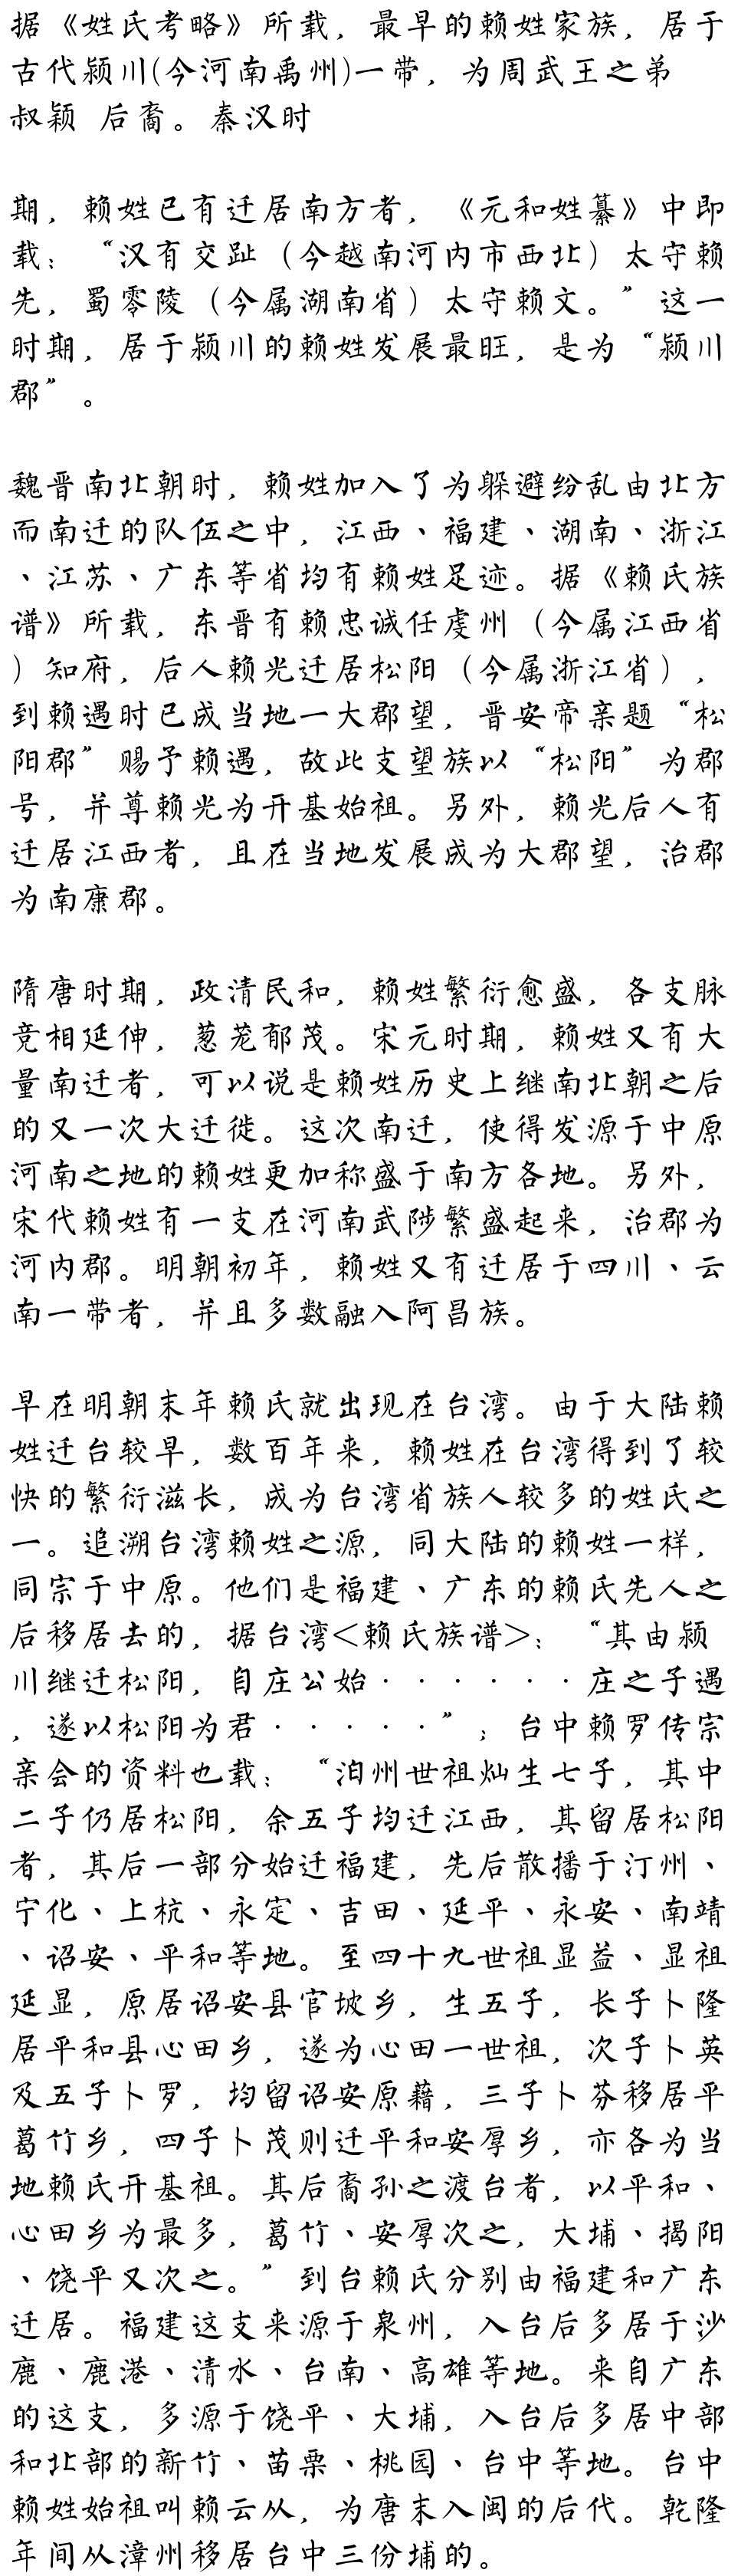 据《姓氏考略》所载，最早的赖姓家族，居于
古代颍川(今河南禹州)一带，为周武王之弟
叔颖 后裔。秦汉时
期，赖姓已有迁居南方者，《元和姓纂》中即
载：“汉有交趾（今越南河内市西北）太守赖
先，蜀零陵（今属湖南省）太守赖文。”这一
时期，居于颍川的赖姓发展最旺，是为“颍川
郡”。
魏晋南北朝时，赖姓加入了为躲避纷乱由北方
而南迁的队伍之中，江西、福建、湖南、浙江
、江苏、广东等省均有赖姓足迹。据《赖氏族
谱》所载，东晋有赖忠诚任虔州（今属江西省
）知府，后人赖光迁居松阳（今属浙江省），
到赖遇时已成当地一大郡望，晋安帝亲题“松
阳郡”赐予赖遇，故此支望族以“松阳”为郡
号，并尊赖光为开基始祖。另外，赖光后人有
迁居江西者，且在当地发展成为大郡望，治郡
为南康郡。
隋唐时期，政清民和，赖姓繁衍愈盛，各支脉
竞相延伸，葱茏郁茂。宋元时期，赖姓又有大
量南迁者，可以说是赖姓历史上继南北朝之后
的又一次大迁徙。这次南迁，使得发源于中原
河南之地的赖姓更加称盛于南方各地。另外，
宋代赖姓有一支在河南武陟繁盛起来，治郡为
河内郡。明朝初年，赖姓又有迁居于四川、云
南一带者，并且多数融入阿昌族。
早在明朝末年赖氏就出现在台湾。由于大陆赖
姓迁台较早，数百年来，赖姓在台湾得到了较
快的繁衍滋长，成为台湾省族人较多的姓氏之
一。追溯台湾赖姓之源，同大陆的赖姓一样，
同宗于中原。他们是福建、广东的赖氏先人之
后移居去的，据台湾<赖氏族谱>：“其由颍
川继迁松阳，自庄公始······庄之子遇
，遂以松阳为君·····”；台中赖罗传宗
亲会的资料也载：“洎州世祖灿生七子，其中
二子仍居松阳，余五子均迁江西，其留居松阳
者，其后一部分始迁福建，先后散播于汀州、
宁化、上杭、永定、吉田、延平、永安、南靖
、诏安、平和等地。至四十九世祖显益、显祖
延显，原居诏安县官坡乡，生五子，长子卜隆
居平和县心田乡，遂为心田一世祖，次子卜英
及五子卜罗，均留诏安原藉，三子卜芬移居平
葛竹乡，四子卜茂则迁平和安厚乡，亦各为当
地赖氏开基祖。其后裔孙之渡台者，以平和、
心田乡为最多，葛竹、安厚次之，大埔、揭阳
、饶平又次之。”到台赖氏分别由福建和广东
迁居。福建这支来源于泉州，入台后多居于沙
鹿、鹿港、清水、台南、高雄等地。来自广东
的这支，多源于饶平、大埔，入台后多居中部
和北部的新竹、苗栗、桃园、台中等地。台中
赖姓始祖叫赖云从，为唐末入闽的后代。乾隆
年间从漳州移居台中三份埔的。